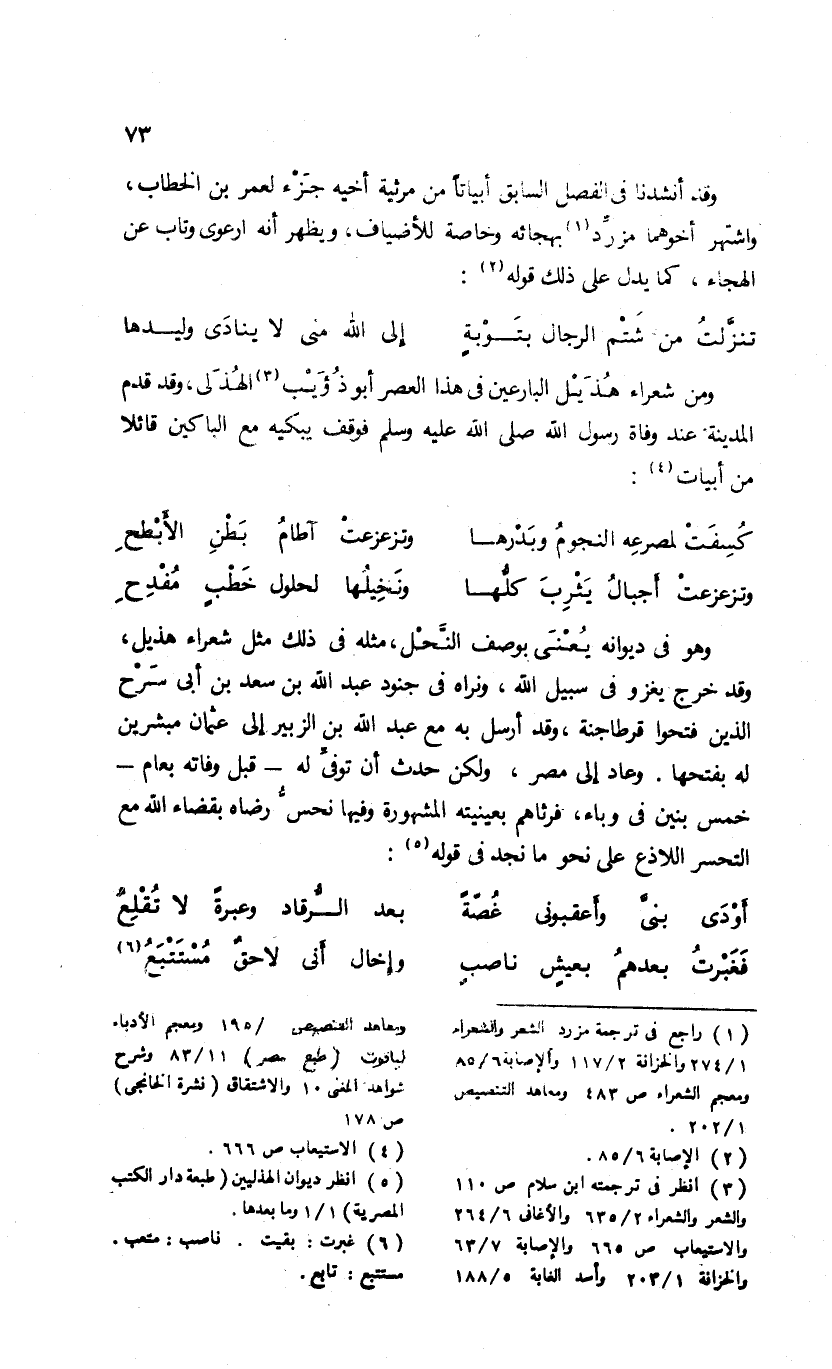 ٧٣
وقد أنشدنا فى الفصل السابق أبياتاً من مرثية أخيه جَزْء لعمر بن الخطاب ،
واشتهر أخوهما مزرِّد(١) بهجائه وخاصة للأضياف ، ويظهر أنه ارعوى وتاب عن
الهجاء ، كما يدل على ذلك قوله(٢) :
تنزَّلتُ من شَتْم الرجال بتَـوْبةٍ إلى الله منى لا ينادَى وليـدها
ومن شعراء هُذَيْل البارعين فى هذا العصر أبو ذُؤَيْب(٣) الهُذَلى ، وقد قدم
المدينة عند وفاة رسول الله صلى الله عليه وسلم فوقف يبكيه مع الباكين قائلا
من أبيات(٤) :
كُسِفَتْ لمصرعِه النجومُ وبَدْرهـا وتزعزعتْ آطامُ بَطْنِ الأَبْطحِ
وتزعزعتْ أجبالُ يَثْرِبَ كلُّهـا ونَخِيلُها لحلول خَطْبٍ مُفْدِحِ
وهو فى ديوانه يُعْنَى بوصف النَّحْل ، مثله فى ذلك مثل شعراء هذيل ،
وقد خرج يغزو فى سبيل الله ، ونراه فى جنود عبد الله بن سعد بن أبى سَرْح
الذين فتحوا قرطاجنة ، وقد أرسل به مع عبد الله بن الزبير إلى عثمان مبشرين
له بفتحها . وعاد إلى مصر ، ولكن حدث أن توفىِّ له – قبل وفاته بعام –
خمس بنين فى وباء ، فرثاهم بعينيته المشهورة وفيها نحسُّ رضاه بقضاء الله مع
التحسر اللاذع على نحو ما نجد فى قوله(٥) :
أوْدَى بنىَّ وأعقبونى غُصّةً بعد الـرُّقاد وعبرةً لا تُقْلِعُ
فَغَبْرتُ بعدهمُ بعيشٍ ناصبٍ وإخال أنى لاحقٌ مُسْتَتْبَعُ(٦)
(١) راجع فى ترجمة مزرد الشعر والشعراء
٢٧٤/١ والخزانة ١١٧/٢ والإصابة ٨٥/٦
ومعجم الشعراء ص ٤٨٣ ومعاهد التنصيص
٢٠٢/١ .
(٢) الإصابة ٨٥/٦ .
(٣) انظر فى ترجمته ابن سلام ص ١١٠
والشعر والشعراء ٦٣٥/٢ والأغانى ٢٦٤/٦
والاستيعاب ص ٦٦٥ والإصابة ٦٣/٧
والخزانة ٢٠٣/١ وأسد الغابة ١٨٨/٥
ومعاهد التنصيص /١٩٥ ومعجم الأدباء
لياقوت (طبع مصر) ٨٣/١١ وشرح
شواهد المغنى ١٠ والاشتقاق (نشرة الخانجى)
ص ١٧٨
(٤) الاستيعاب ص ٦٦٦ .
(٥) انظر ديوان الهذليين (طبعة دار الكتب
المصرية) ١/١ وما بعدها .
(٦) غبرت : بقيت . ناصب : متعب .
مستتبع : تابع .